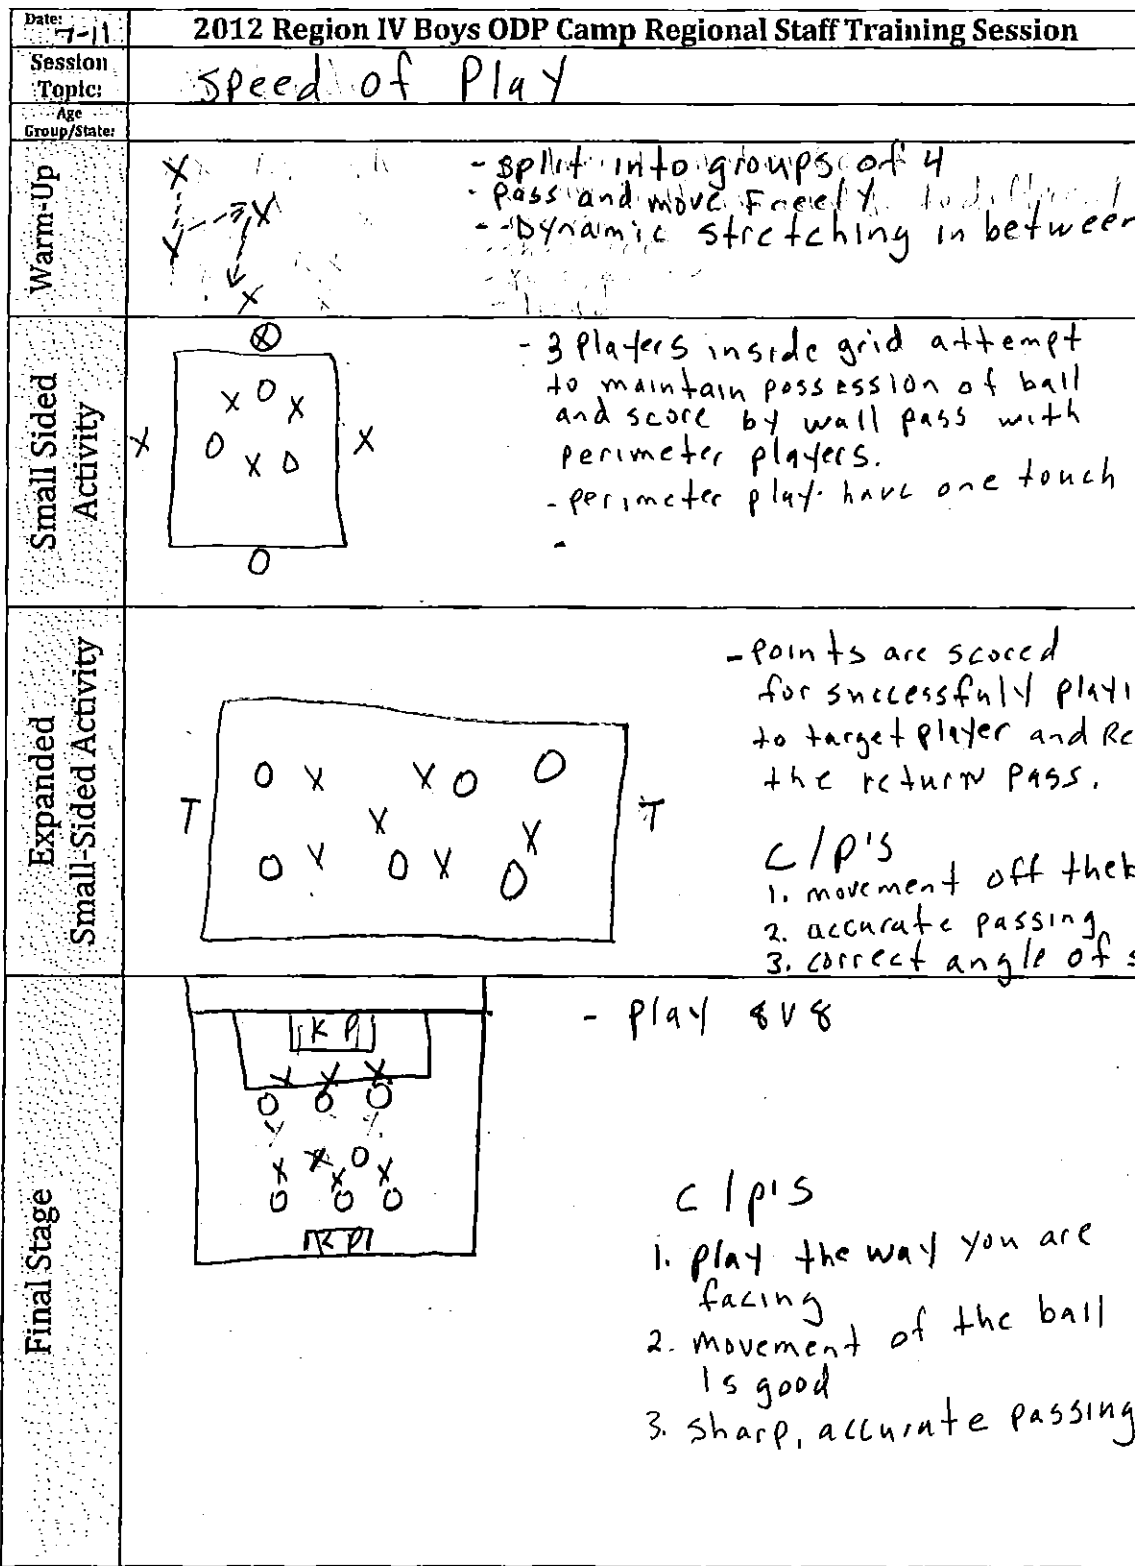 Date: 7-11
2012 Region IV Boys ODP Camp Regional Staff Training Session
Session Topic:
Speed of Play
Age Group/State:
Warm-Up
X
X
X
X
- split into groups of 4
- Pass and move Freely
- Dynamic stretching in between
Small Sided Activity
X
X O X
X O X
X O
O
- 3 Players inside grid attempt
to maintain possession of ball
and score by wall pass with
perimeter players.
- perimeter play. have one touch
-
Expanded Small-Sided Activity
O X X O O
T T
X X
O X O X O
- Points are scored
for successfuly playi
to target player and Re
the return pass.
C/P'S
1. movement off the b
2. accurate passing
3. correct angle of s
Final Stage
K P
X X X
O O O
X X O X X
O O O
K P
- Play 8v8
C/P'S
1. Play the way you are
facing
2. movement of the ball
is good
3. sharp, accurate passing